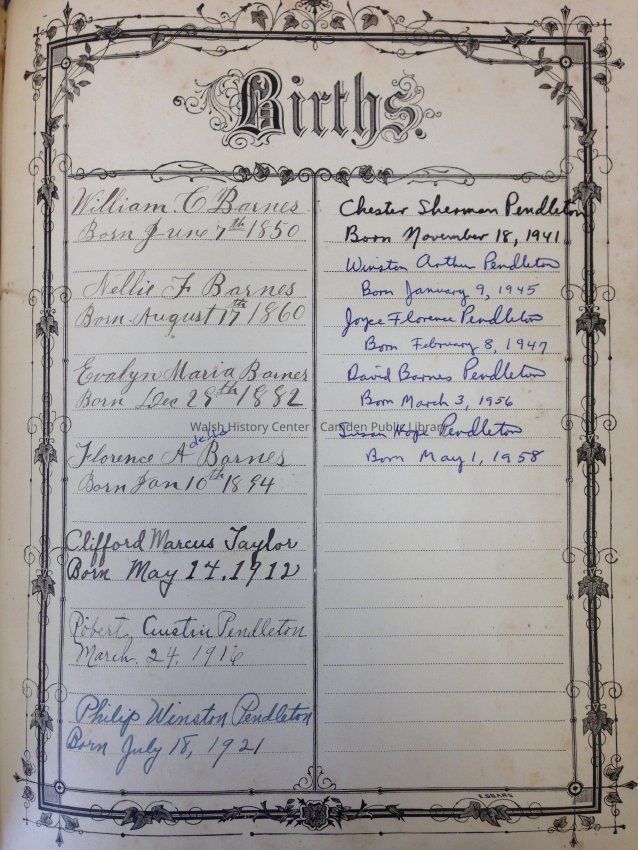 Births.
William. C Barnes
Born June 7th 1850
Nellie F Barnes
Born August 17th 1860
Evalyn Maria Barnes
Born Dec 28th 1882
della
Florence A Barnes
Born Jan 10th 1894
Clifford Marcus Taylor
Born May 14, 1912
Robert Austin Pendleton
March. 24, 1916
Philip Winston Pendleton
Born July 18, 1921
Chester Sherman Pendleton
Born November 18, 1941
Winston Arthur Pendleton
Born January 9, 1945
Joyce Florence Pendleton
Born February 8, 1947
David Barnes Pendleton
Born March 3, 1956
Susan Hope Pendleton
Born May 1, 1958
Walsh History Center - Camden Public Library
E.SEARS